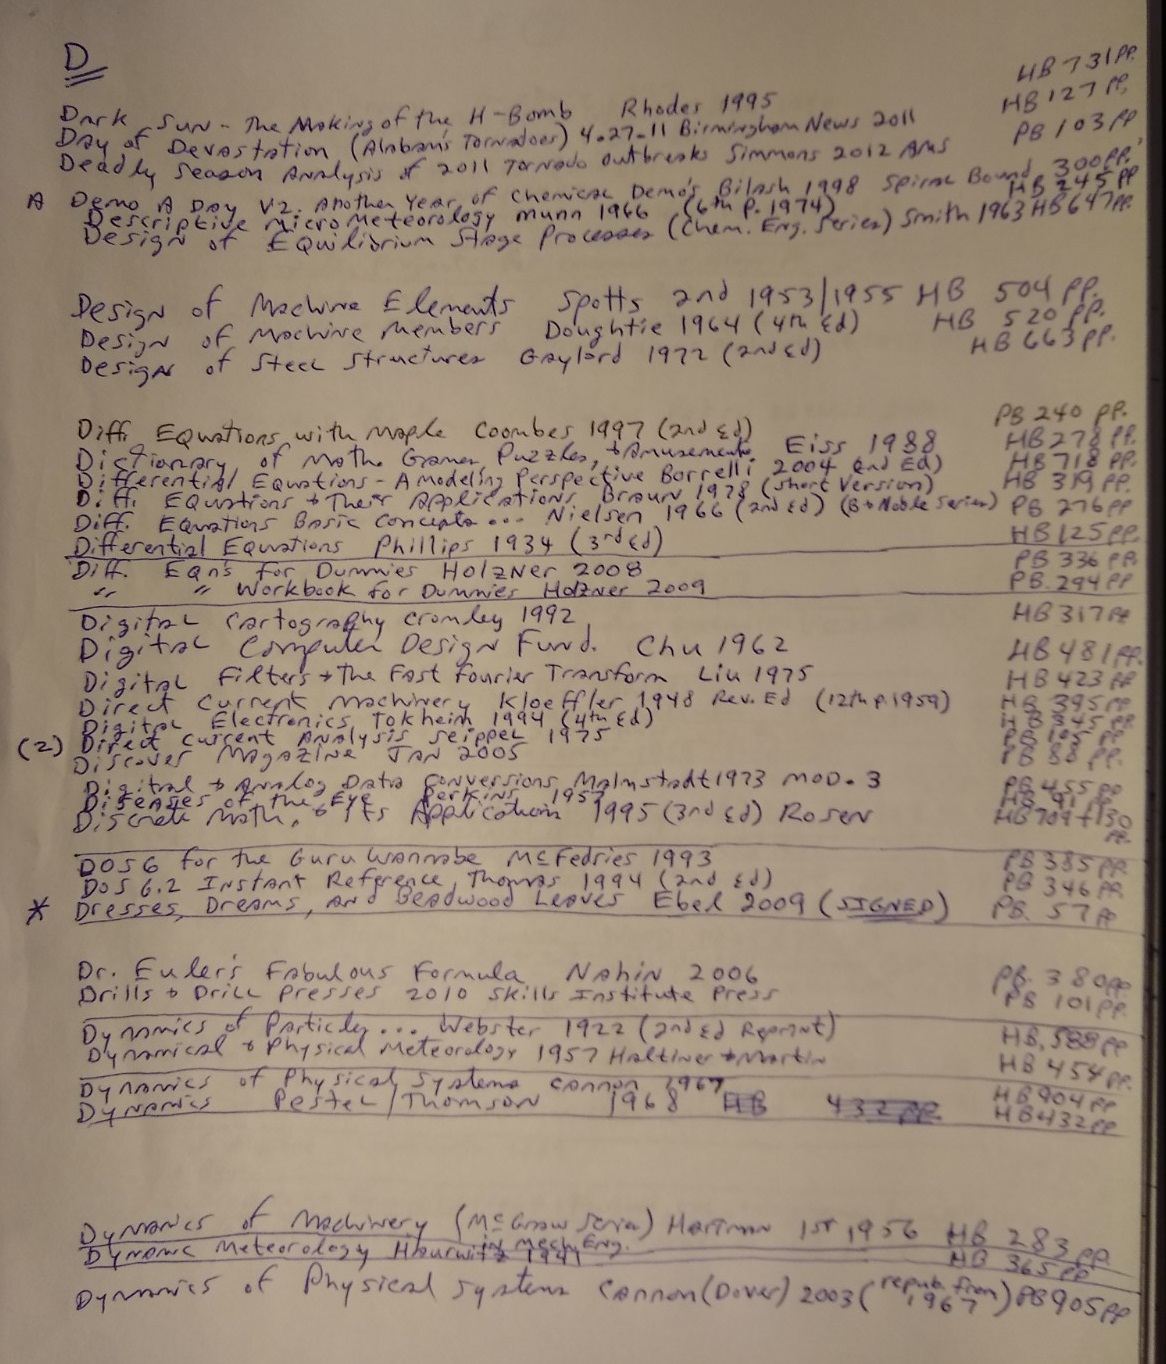 D
Dark Sun - The Making of the H-Bomb Rhodes 1995 HB 731 PP.
Day of Devastation (Alabama's Tornadoes) 4-27-11 Birmingham News 2011 HB 127 PP.
Deadly Season Analysis of 2011 Tornado Outbreaks Simmons 2012 AMS PB 103 PP
A Demo A Day V2. Another Year of Chemical Demo's Bilash 1998 Spiral Bound 300 PP.
Descriptive MicroMeteorology Munn 1966 (6th p. 1974) HB 245 PP
Design of Equilibrium Stage Processes (Chem. Eng. Series) Smith 1963 HB 647 PP.
Design of Machine Elements Spotts 2nd 1953/1955 HB 504 PP.
Design of Machine Members Doughtie 1964 (4th Ed) HB 520 PP.
Design of Steel Structures Gaylord 1972 (2nd Ed) HB 663 PP.
Diff. Equations with Maple Coombes 1997 (2nd Ed) PB 240 PP.
Dictionary of Math Games, Puzzles, + Amusements Eiss 1988 HB 278 PP.
Differential Equations - A Modeling Perspective Borrelli 2004 2nd Ed) HB 718 PP.
Diff. Equations + Their Applications Braun 1978 (Short Version) HB 319 PP.
Diff. Equations Basic Concepts ... Nielsen 1966 (2nd Ed) (B+Noble Series) PB 276 PP
Differential Equations Phillips 1934 (3rd Ed) HB 125 PP.
Diff. Eqn's for Dummies Holzner 2008 PB 336 PP.
" " Workbook for Dummies Holzner 2009 PB. 294 PP
Digital Cartography Cromley 1992 HB 317 PP
Digital Computer Design Fund. Chu 1962 HB 481 PP.
Digital Filters + The Fast Fourier Transform Liu 1975 HB 423 PP
Direct Current Machinery Kloeffler 1948 Rev. Ed (12th p. 1959) HB 395 PP
Digital Electronics Tokheim 1994 (4th Ed) HB 345 PP
(2) Direct Current Analysis Seippel 1975 PB PP
Discover Magazine Jan 2005 PB 88 PP.
Digital + Analog Data Conversions Malmstadt 1973 Mod. 3 PB 455 PP
Diseases of the Eye Perkins 1957 HB 91 PP
Discrete Math. + Its Applications 1995 (3rd Ed) Rosen HB 709 + 130 PP.
DOS 6 for the Guru Wannabe McFedries 1993 PB 385 PP.
DOS 6.2 Instant Reference Thomas 1994 (2nd Ed) PB 346 PP.
* Dresses, Dreams, and Beadwood Leaves Ebel 2009 (SIGNED) PB. 57 P
Dr. Euler's Fabulous Formula Nahin 2006 PB. 380 PP
Drills + Drill Presses 2010 Skills Institute Press PB 101 PP.
Dynamics of Particles ... Webster 1922 (2nd Ed Reprint) HB. 588 PP
Dynamical + Physical Meteorology 1957 Haltiner + Martin HB 454 PP.
Dynamics of Physical Systems Cannon 1967 HB 904 PP
Dynamics Pestel/Thomson 1968 HB 432 PP. HB 432 PP
Dynamics of Machinery (McGraw Series in Mech. Eng.) Hartman 1st 1956 HB 283 PP.
Dynamic Meteorology Haurwitz 1941 HB 365 PP
Dynamics of Physical Systems Cannon (Dover) 2003 (repub. from 1967) PB 905 PP